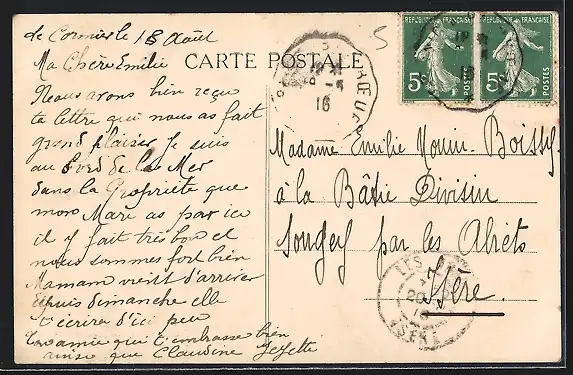 Le Cormier le 18 Août
Ma Chère Emilie
Nous avons bien reçu
ta lettre qui nous as fait
grand plaisir Je suis
au bord de la Mer
dans la Propriété que
mon Mari as par ici
il y fait très bon et
nous sommes fort bien
Maman vient d'arriver
depuis dimanche elle
t'écrira d'ici peu
Ton amie qui t'embrasse bien
ainsi que Claudine
CARTE POSTALE
5
16
REPUBLIQUE FRANÇAISE
5c
POSTES
REPUBLIQUE FRANÇAISE
5c
POSTES
Madame Emilie Mouin-Boissy
à la Bâtie Divisin
par les Abrets
Isère.
LES
20
ISERE